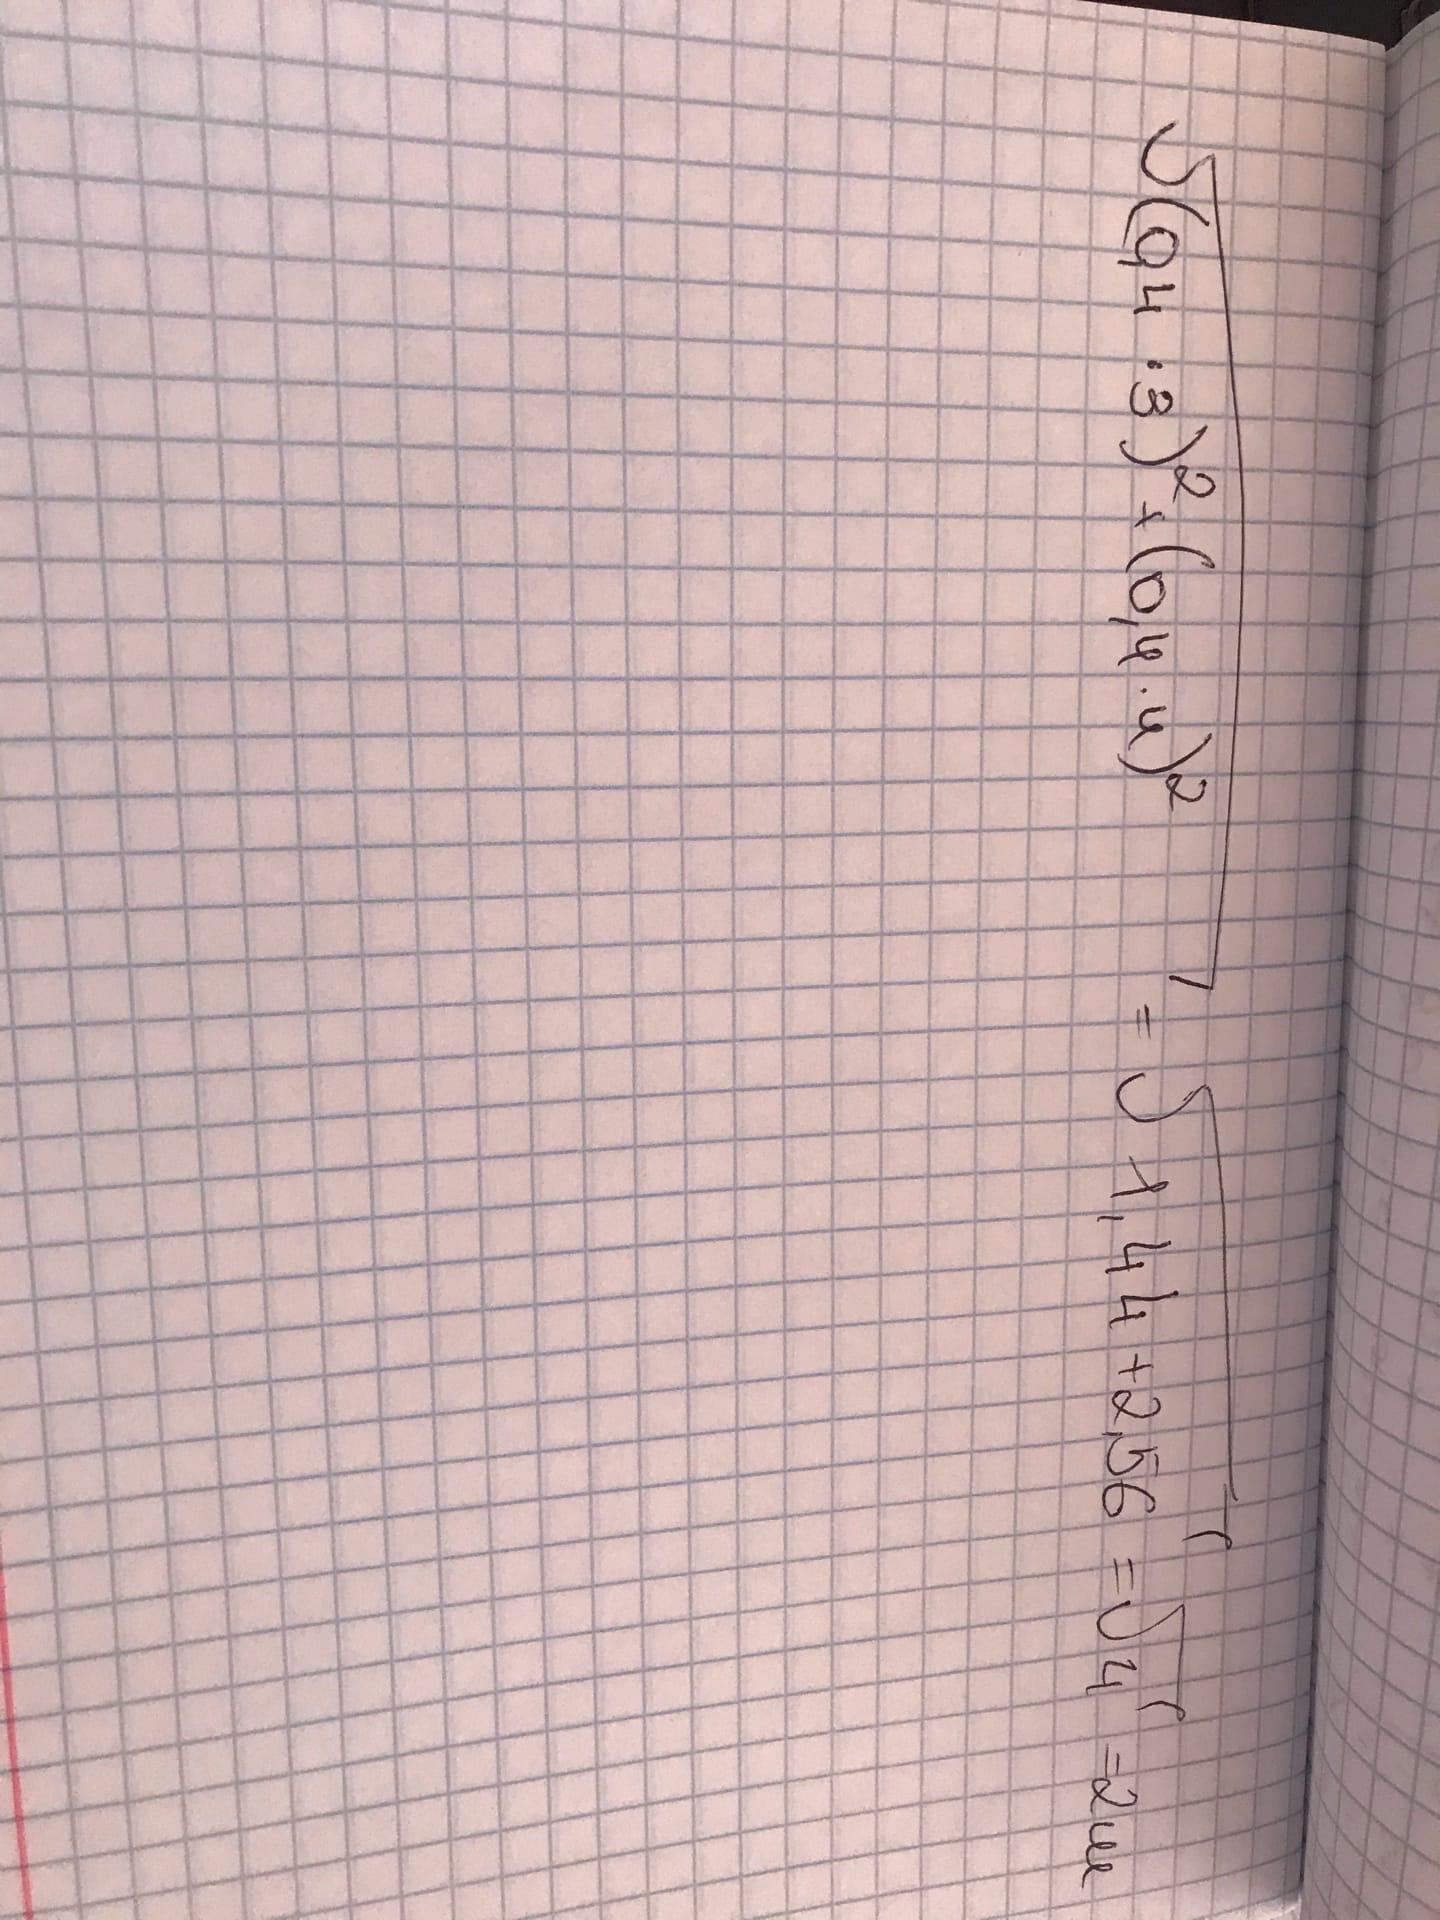 √(0,4 · 3)² + (0,4 · 4)² = √1,44 + 2,56 = √4 = 2м